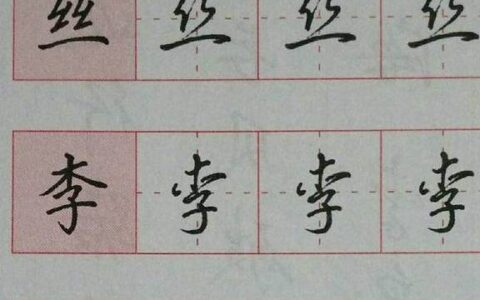 丝丝丝丝
李李李李